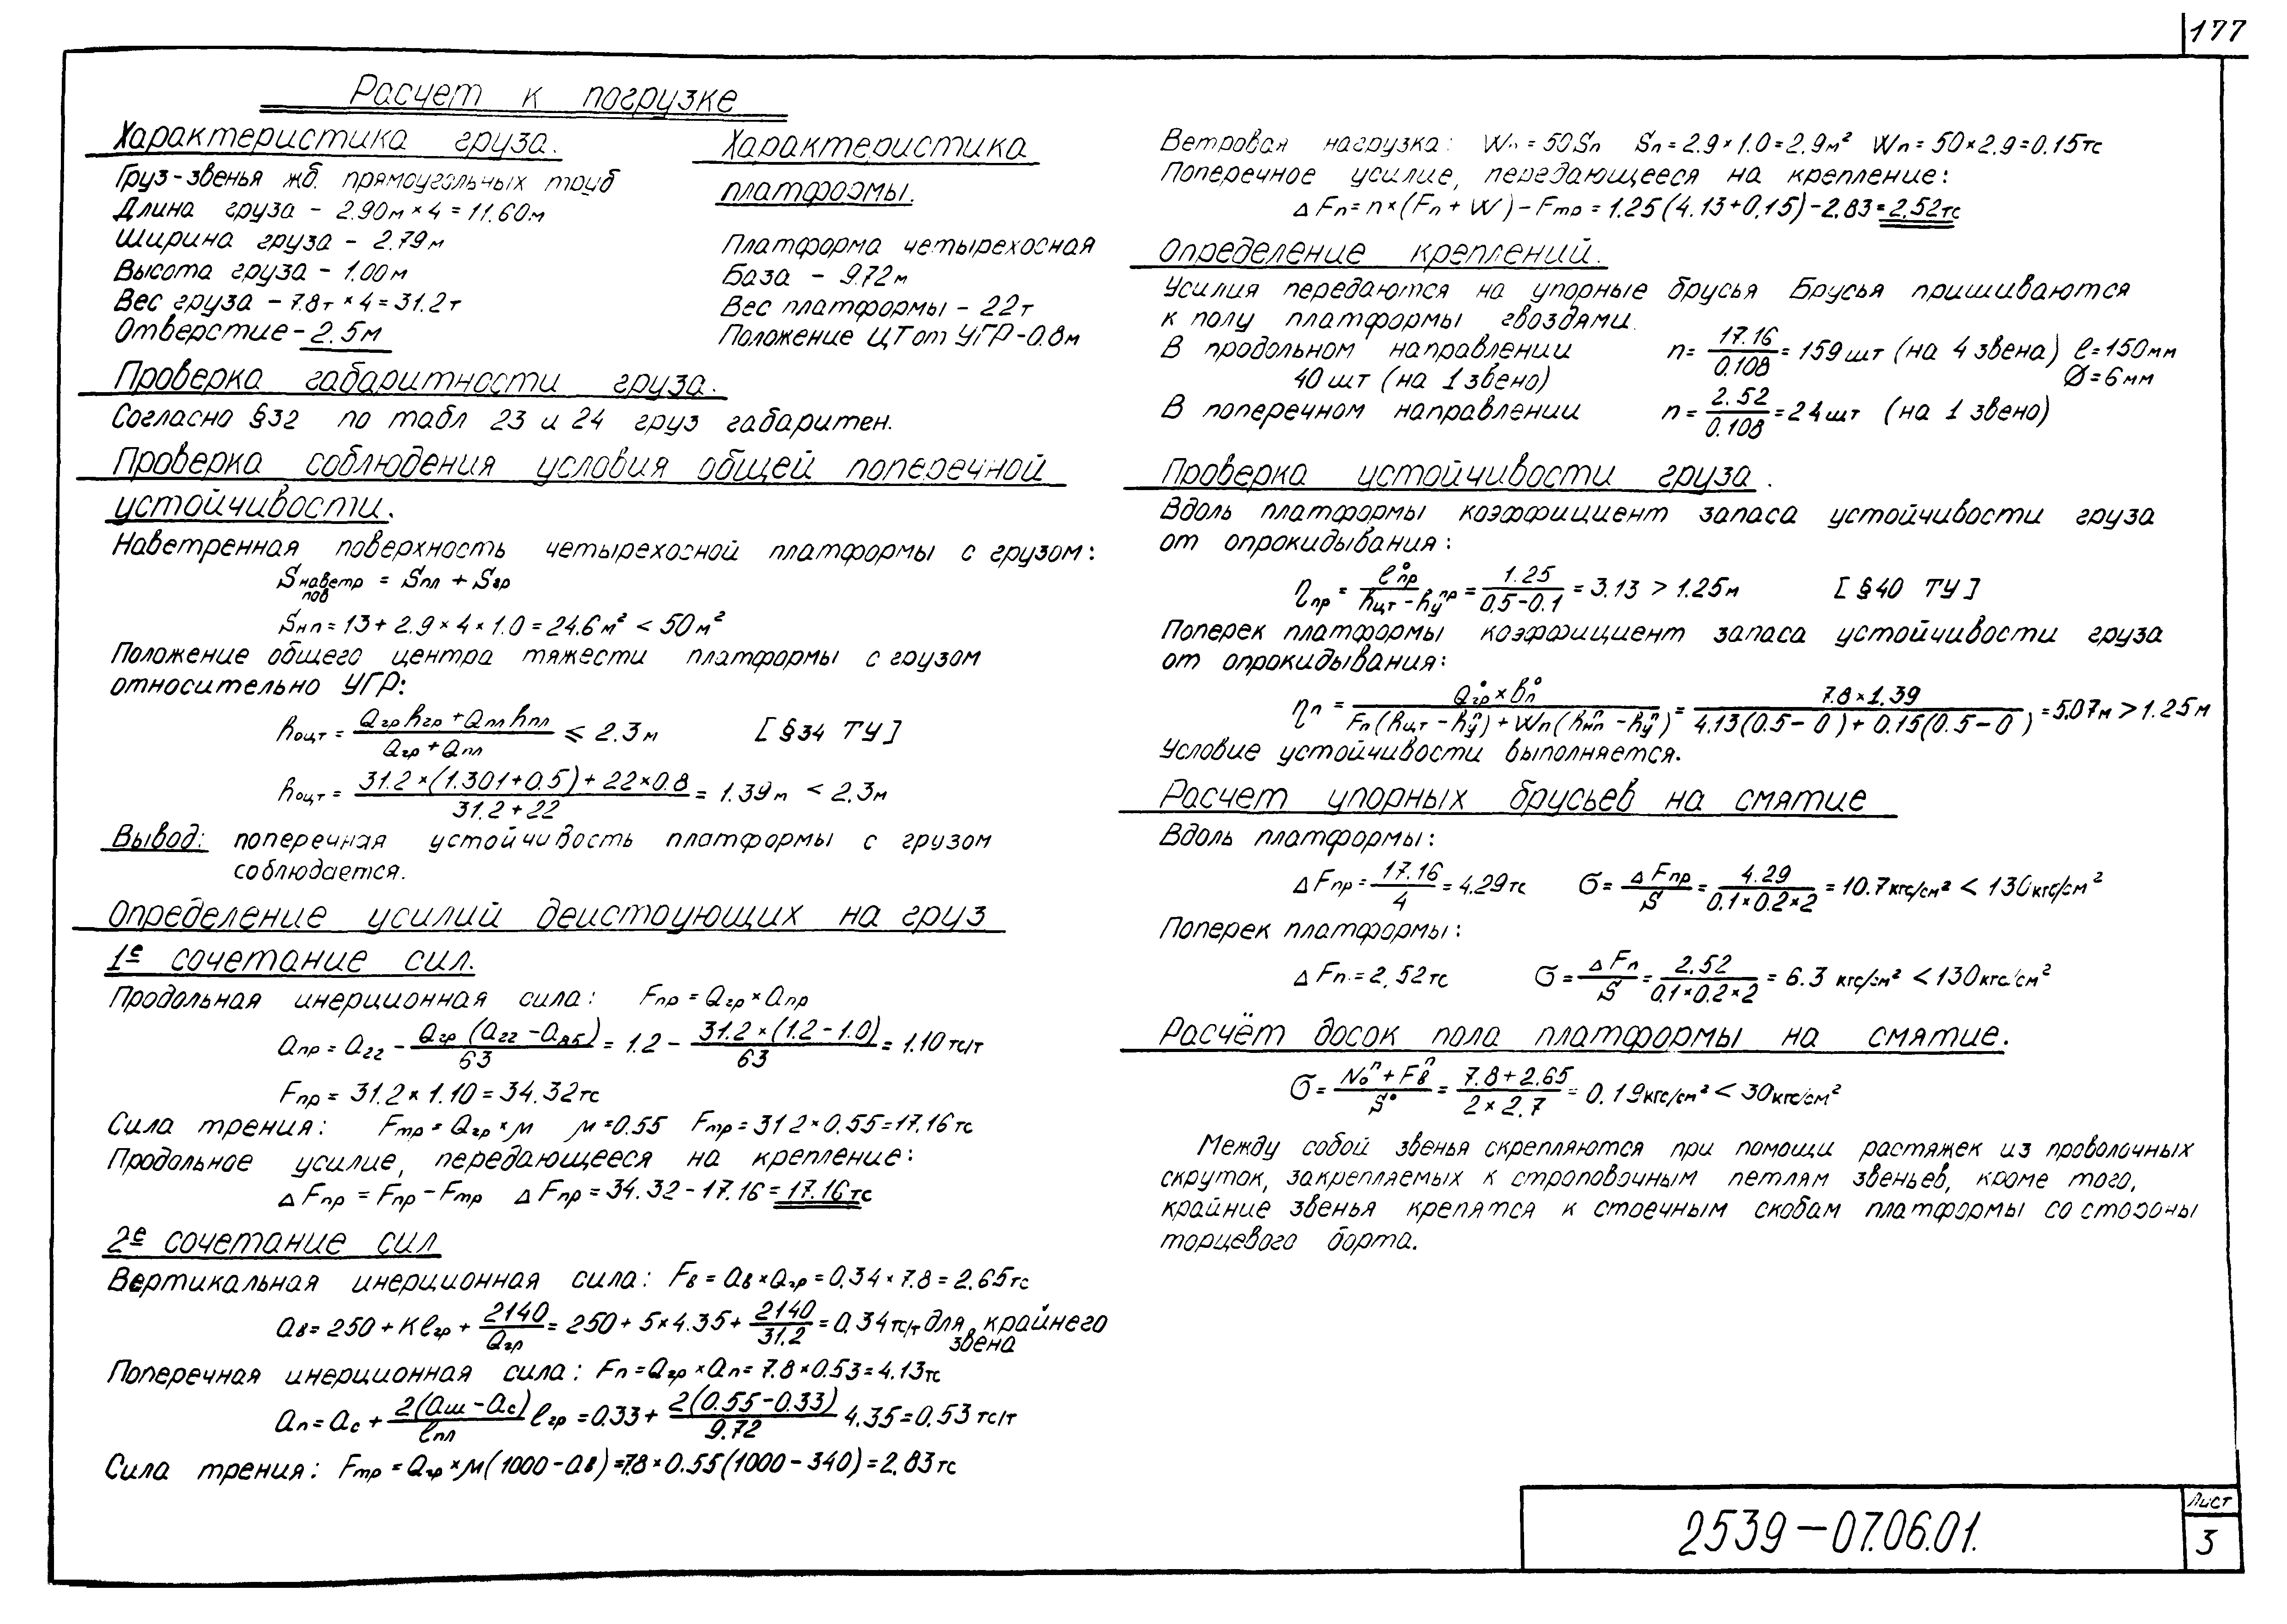 177
Расчет к погрузке
Характеристика груза.
Груз-звенья жб. прямоугольных труб
Длина груза - 2.90м × 4 = 11.60м
Ширина груза - 2.79м
Высота груза - 1.00м
Вес груза - 7.8т × 4 = 31.2т
Отверстие - 2.5м
Характеристика
платформы.
Платформа четырехосная
База - 9.72м
Вес платформы - 22т
Положение ЦТ от УГР - 0.8м
Проверка габаритности груза.
Согласно §32 по табл 23 и 24 груз габаритен.
Проверка соблюдения условия общей поперечной
устойчивости.
Наветренная поверхность четырехосной платформы с грузом:
Sнаветр пов = Sпл + Sгр
Sнп = 13 + 2.9 × 4 × 1.0 = 24.6м² < 50м²
Положение общего центра тяжести платформы с грузом
относительно УГР:
hоцт = (Qгр hгр + Qпл hпл)/(Qгр + Qпл) ⩽ 2.3м [§34 ТУ]
hоцт = (31.2 × (1.301 + 0.5) + 22 × 0.8)/(31.2 + 22) = 1.39м < 2.3м
Вывод: поперечная устойчивость платформы с грузом
соблюдается.
Определение усилий деистоующих на груз
1е сочетание сил.
Продольная инерционная сила: Fпр = Qгр × aпр
aпр = a22 - Qгр (a22 - a85)/63 = 1.2 - 31.2 × (1.2 - 1.0)/63 = 1.10 тс/т
Fпр = 31.2 × 1.10 = 34.32тс
Сила трения: Fтр = Qгр × м м = 0.55 Fтр = 31 2 × 0.55 = 17.16 тс
Продольное усилие, передающееся на крепление:
Δ Fпр = Fпр - Fтр Δ Fпр = 34.32 - 17.16 = 17.16 тс
2е сочетание сил
Вертикальная инерционная сила: Fв = aв × Qгр = 0.34 × 7.8 = 2.65тс
aв = 250 + Kℓгр + 2140/Qгр = 250 + 5 × 4.35 + 2140/31.2 = 0.34 тс/т для крайнего
звена
Поперечная инерционная сила: Fп = Qгр × aп = 7.8 × 0.53 = 4.13тс
aп = aс + 2(aш - aс)/ℓпл ℓгр = 0.33 + 2(0.55 - 0.33)/9.72 4.35 = 0.53 тс/т
Сила трения: Fтр = Qгр × м(1000 - aв) = 7.8 × 0.55(1000 - 340) = 2.83 тс
Ветровая нагрузка: Wп = 50Sп Sп = 2.9 × 1.0 = 2.9м² Wп = 50 × 2.9 = 0.15тс
Поперечное усилие, передающееся на крепление:
Δ Fп = n × (Fп + W) - Fтр = 1.25 (4.13 + 0.15) - 2.83 = 2.52тс
Определение креплений.
Усилия передаются на упорные брусья Брусья пришиваются
к полу платформы гвоздями.
В продольном направлении n = 17.16/0.108 = 159 шт (на 4 звена) ℓ = 150мм
40 шт (на 1 звено) Ø = 6мм
В поперечном направлении n = 2.52/0.108 = 24 шт (на 1 звено)
Проверка устойчивости груза.
Вдоль платформы коэффициент запаса устойчивости груза
от опрокидывания:
ηпр = ℓ°пр/(hцт - hу пр) = 1.25/(0.5 - 0.1) = 3.13 > 1.25м [§40 ТУ]
Поперек платформы коэффициент запаса устойчивости груза
от опрокидывания:
ηп = (Q°гр × в°п)/(Fп(hцт - hуп) + Wп(hнп п - hуп)) = (7.8 × 1.39)/(4.13(0.5 - 0) + 0.15(0.5 - 0)) = 5.07м > 1.25м
Условие устойчивости выполняется.
Расчет упорных брусьев на смятие
Вдоль платформы:
Δ Fпр = 17.16/4 = 4.29 тс σ = Δ Fпр/S = 4.29/(0.1 × 0.2 × 2) = 10.7 кгс/см² < 130 кгс/см²
Поперек платформы:
Δ Fп = 2,52тс σ = Δ Fп/S = 2.52/(0.1 × 0.2 × 2) = 6.3 кгс/см² < 130 кгс/см²
Расчёт досок пола платформы на смятие.
σ = (N°п + Fвп)/S° = (7.8 + 2.65)/(2 × 2.7) = 0.19 кгс/см² < 30 кгс/см²
Между собой звенья скрепляются при помощи растяжек из проволочных
скруток, закрепляемых к строповочным петлям звеньев, кроме того,
крайние звенья крепятся к стоечным скобам платформы со стороны
торцевого борта.
2539-07.06.01.
Лист
3